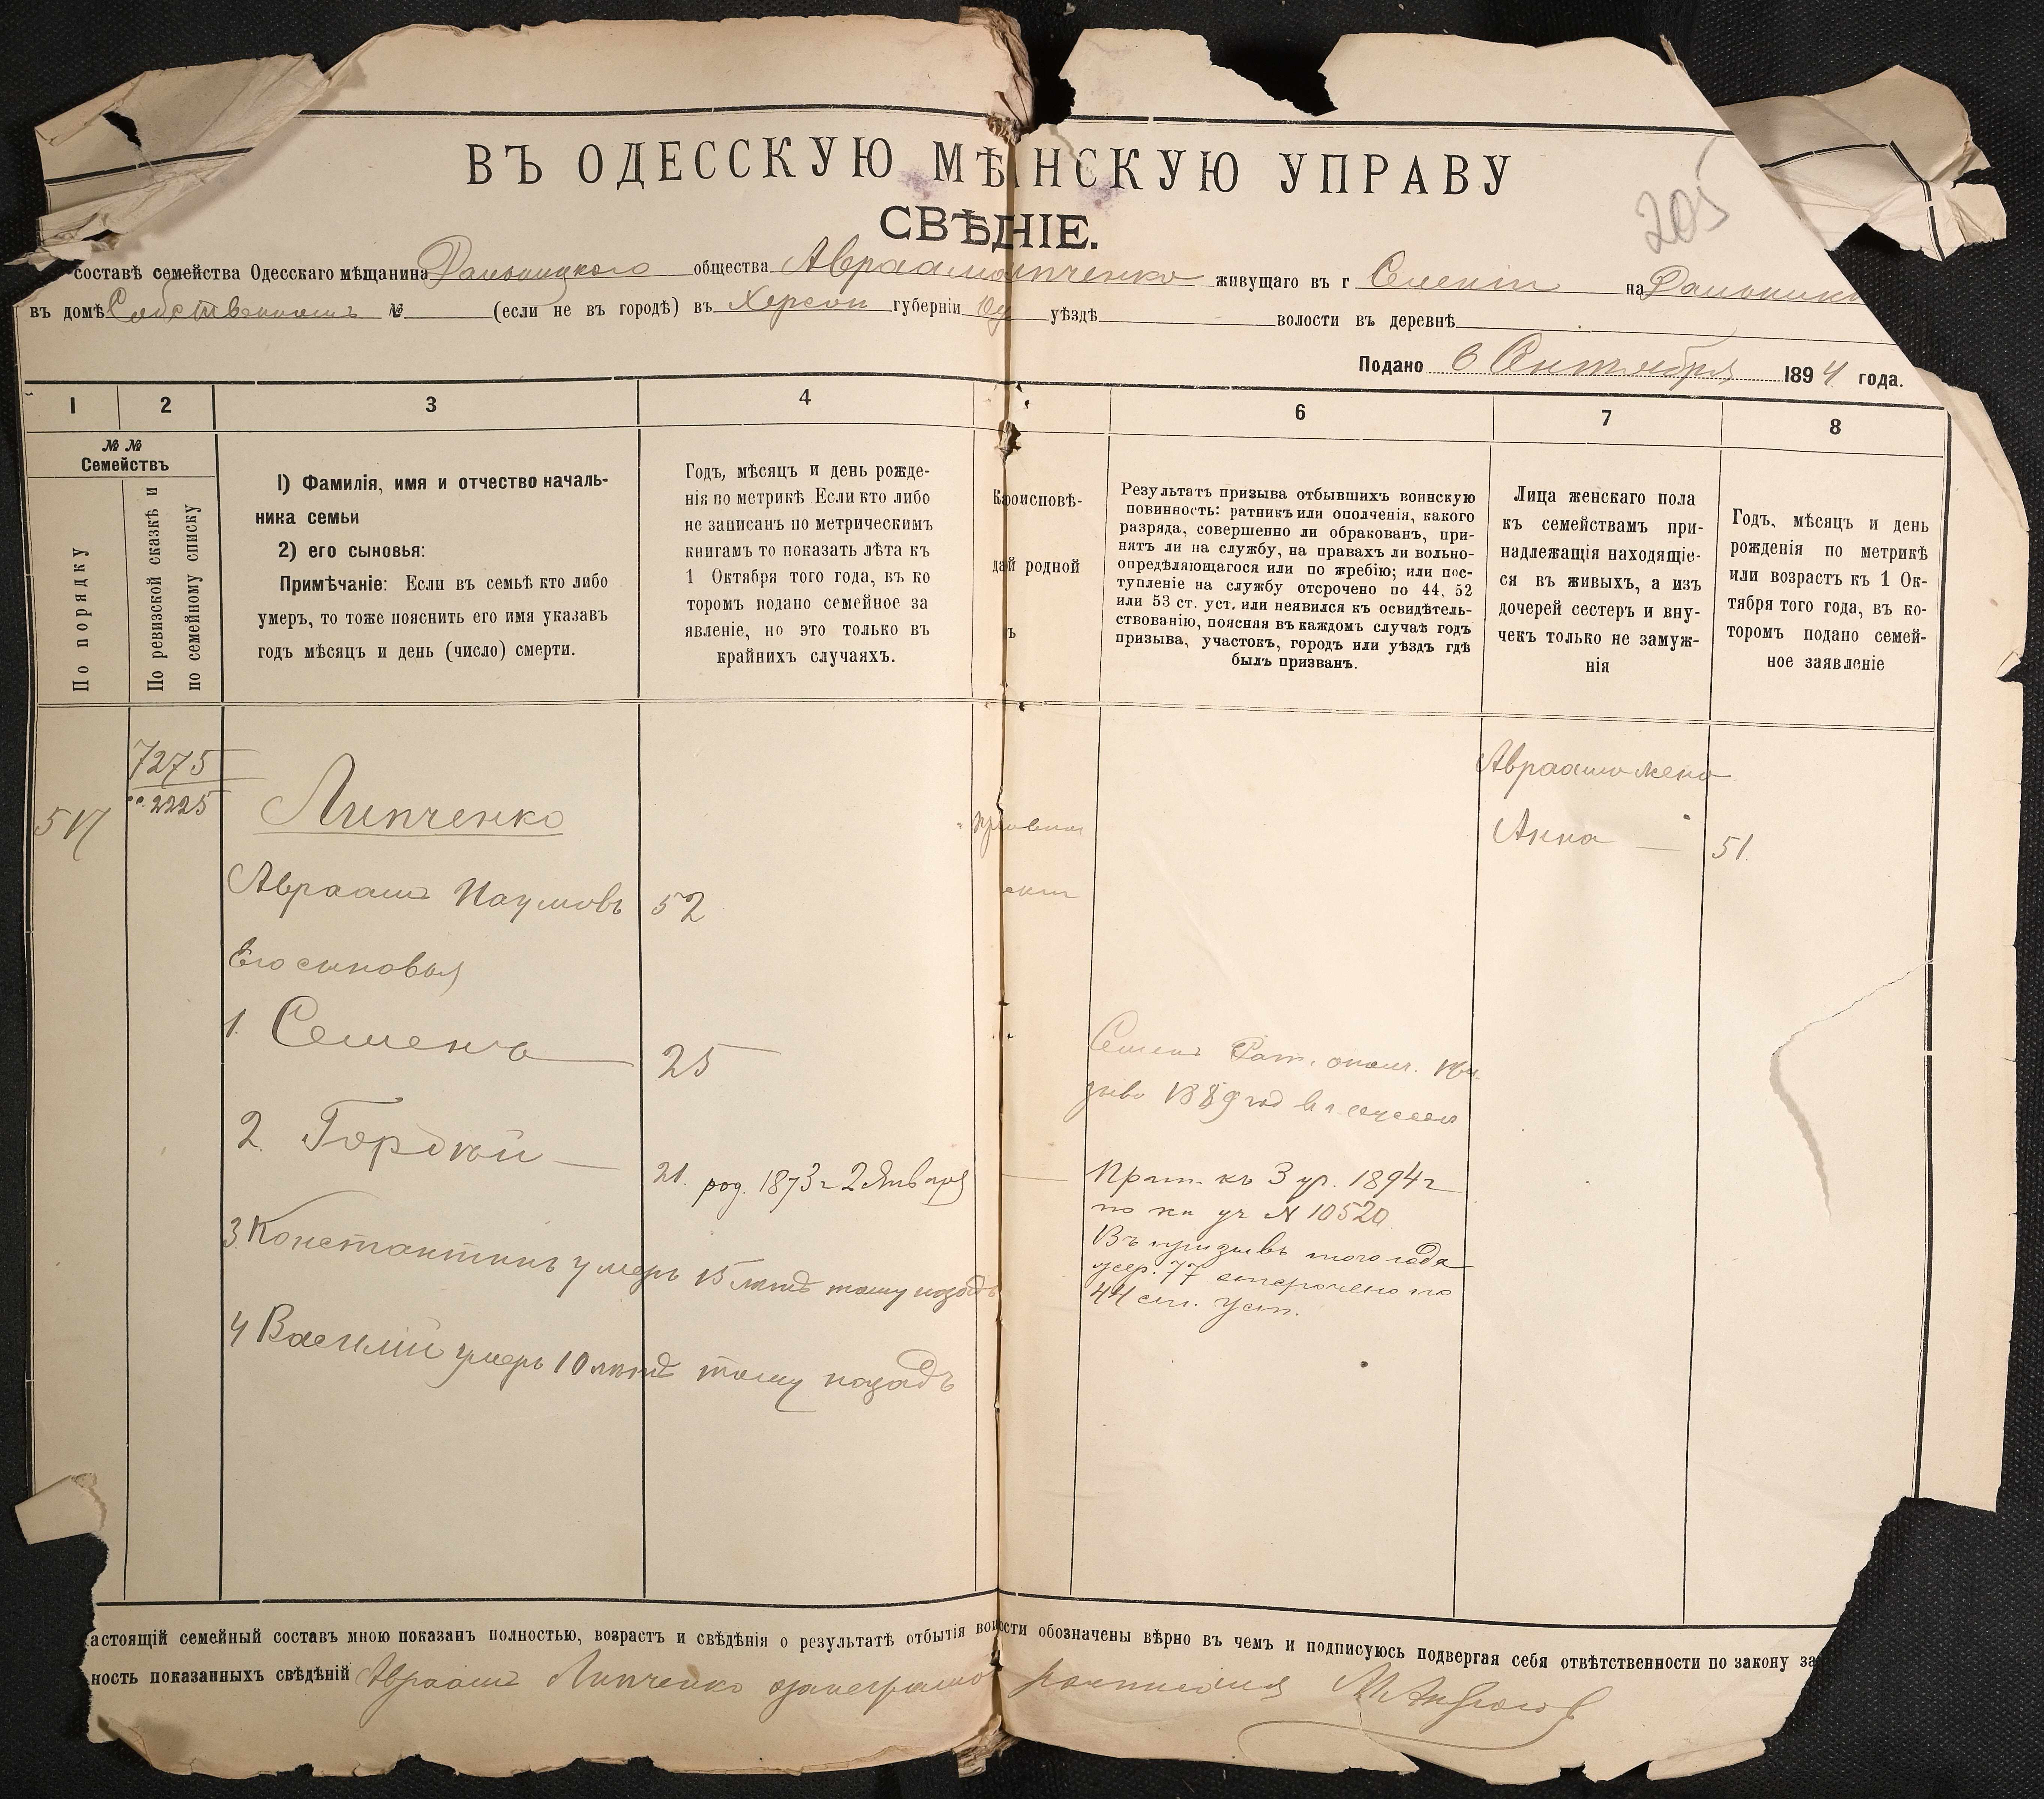 ВЪ ОДЕССКУЮ МѢНСКУЮ УПРАВУ
205
СВѢДНІЕ.
составѣ семейства Одесскаго мѣщанина Дальницкаго общества Авраама Липченко живущаго въ г Селеніи на Дальники
въ домѣ Собственномъ № (если не въ городѣ) въ Херсон губерніи Од уѣздѣ волости въ деревнѣ
Подано 6 Сентября 1894 года.
1 2 3 4 6 7 8
№ № Семействъ
По порядку
По ревизской сказкѣ и
по семейному списку
1) Фамилія, имя и отчество началь-
ника семьи
2) его сыновья:
Примѣчаніе: Если въ семьѣ кто либо
умеръ, то тоже пояснить его имя указавъ
годъ мѣсяцъ и день (число) смерти.
Годъ, мѣсяцъ и день рожде-
нія по метрикѣ Если кто либо
не записанъ по метрическимъ
книгамъ то показать лѣта къ
1 Октября того года, въ ко
торомъ подано семейное за
явленіе, но это только въ
крайнихъ случаяхъ.
Кроисповѣ-
дай родной
ъ
Результатъ призыва отбывшихъ воинскую
повинность: ратникъ или ополченія, какого
разряда, совершенно ли обракованъ, при-
нятъ ли на службу, на правахъ ли вольно-
опредѣляющагося или по жребію; или пос-
тупленіе на службу отсрочено по 44, 52
или 53 ст. уст. или неявился къ освидѣтель-
ствованію, поясняя въ каждомъ случаѣ годъ
призыва, участокъ, городъ или уѣздъ гдѣ
былъ призванъ.
Лица женскаго пола
къ семействамъ при-
надлежащія находящіе-
ся въ живыхъ, а изъ
дочерей сестеръ и вну-
чекъ только не замуж-
нія
Годъ, мѣсяцъ и день
рожденія по метрикѣ
или возрастъ къ 1 Ок-
тября того года, въ ко-
торомъ подано семей-
ное заявленіе
7275
2225
517
Липченко
Авраамъ Наумовъ 52
Его сыновья
1. Семенъ 25
2 Гордѣй 21. род. 1873 г 2 Января
3 Константинъ умеръ 15 лѣтъ тому назадъ
4 Василій умеръ 10 лѣтъ тому назадъ
Семенъ Рат. ополч. При-
зыва 1889 год
Прип. къ 3 уч. 1894 г
по кн уч N 10520
Въ призывъ того года
жер. 77 отсрочено по
44 ст. Уст.
Авраама жена
Анна — 51.
астоящій семейный составъ мною показанъ полностью, возрастъ и свѣдѣнія о результатѣ отбытія вонности обозначены вѣрно въ чемъ и подписуюсь подвергая себя отвѣтственности по закону за
ность показанныхъ свѣдѣній Авраамъ Липченко неграмотн